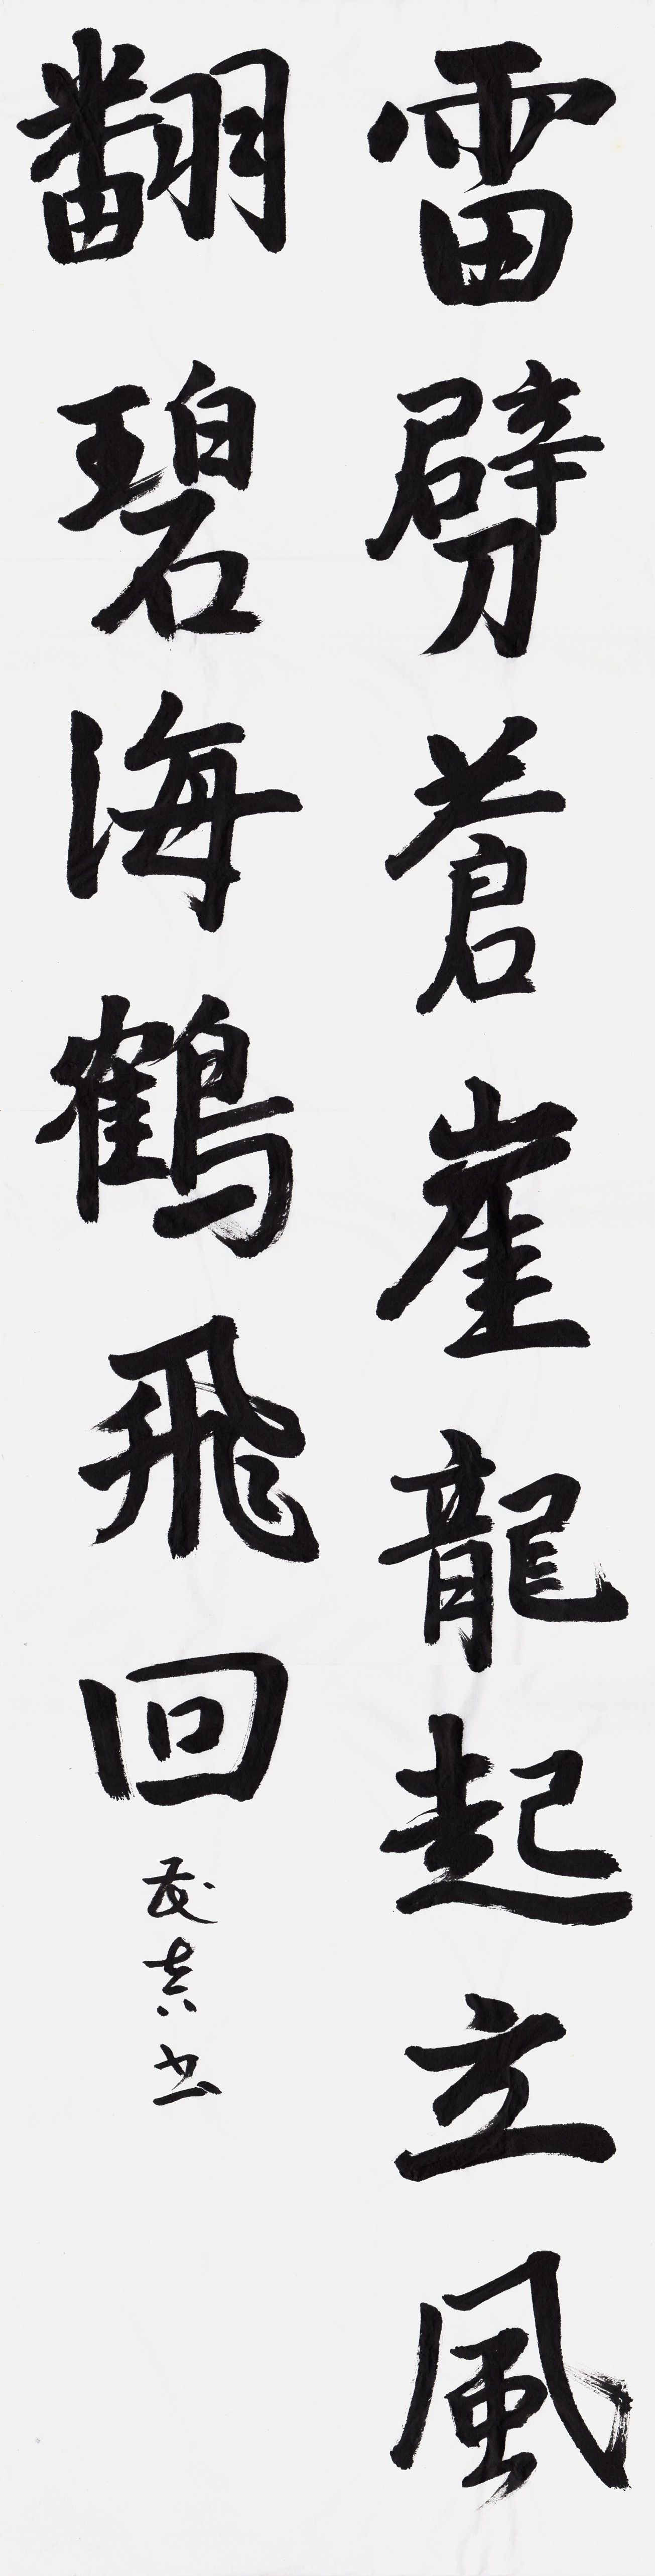 雷劈蒼崖龍起立風
翻碧海鶴飛回
茂吉書